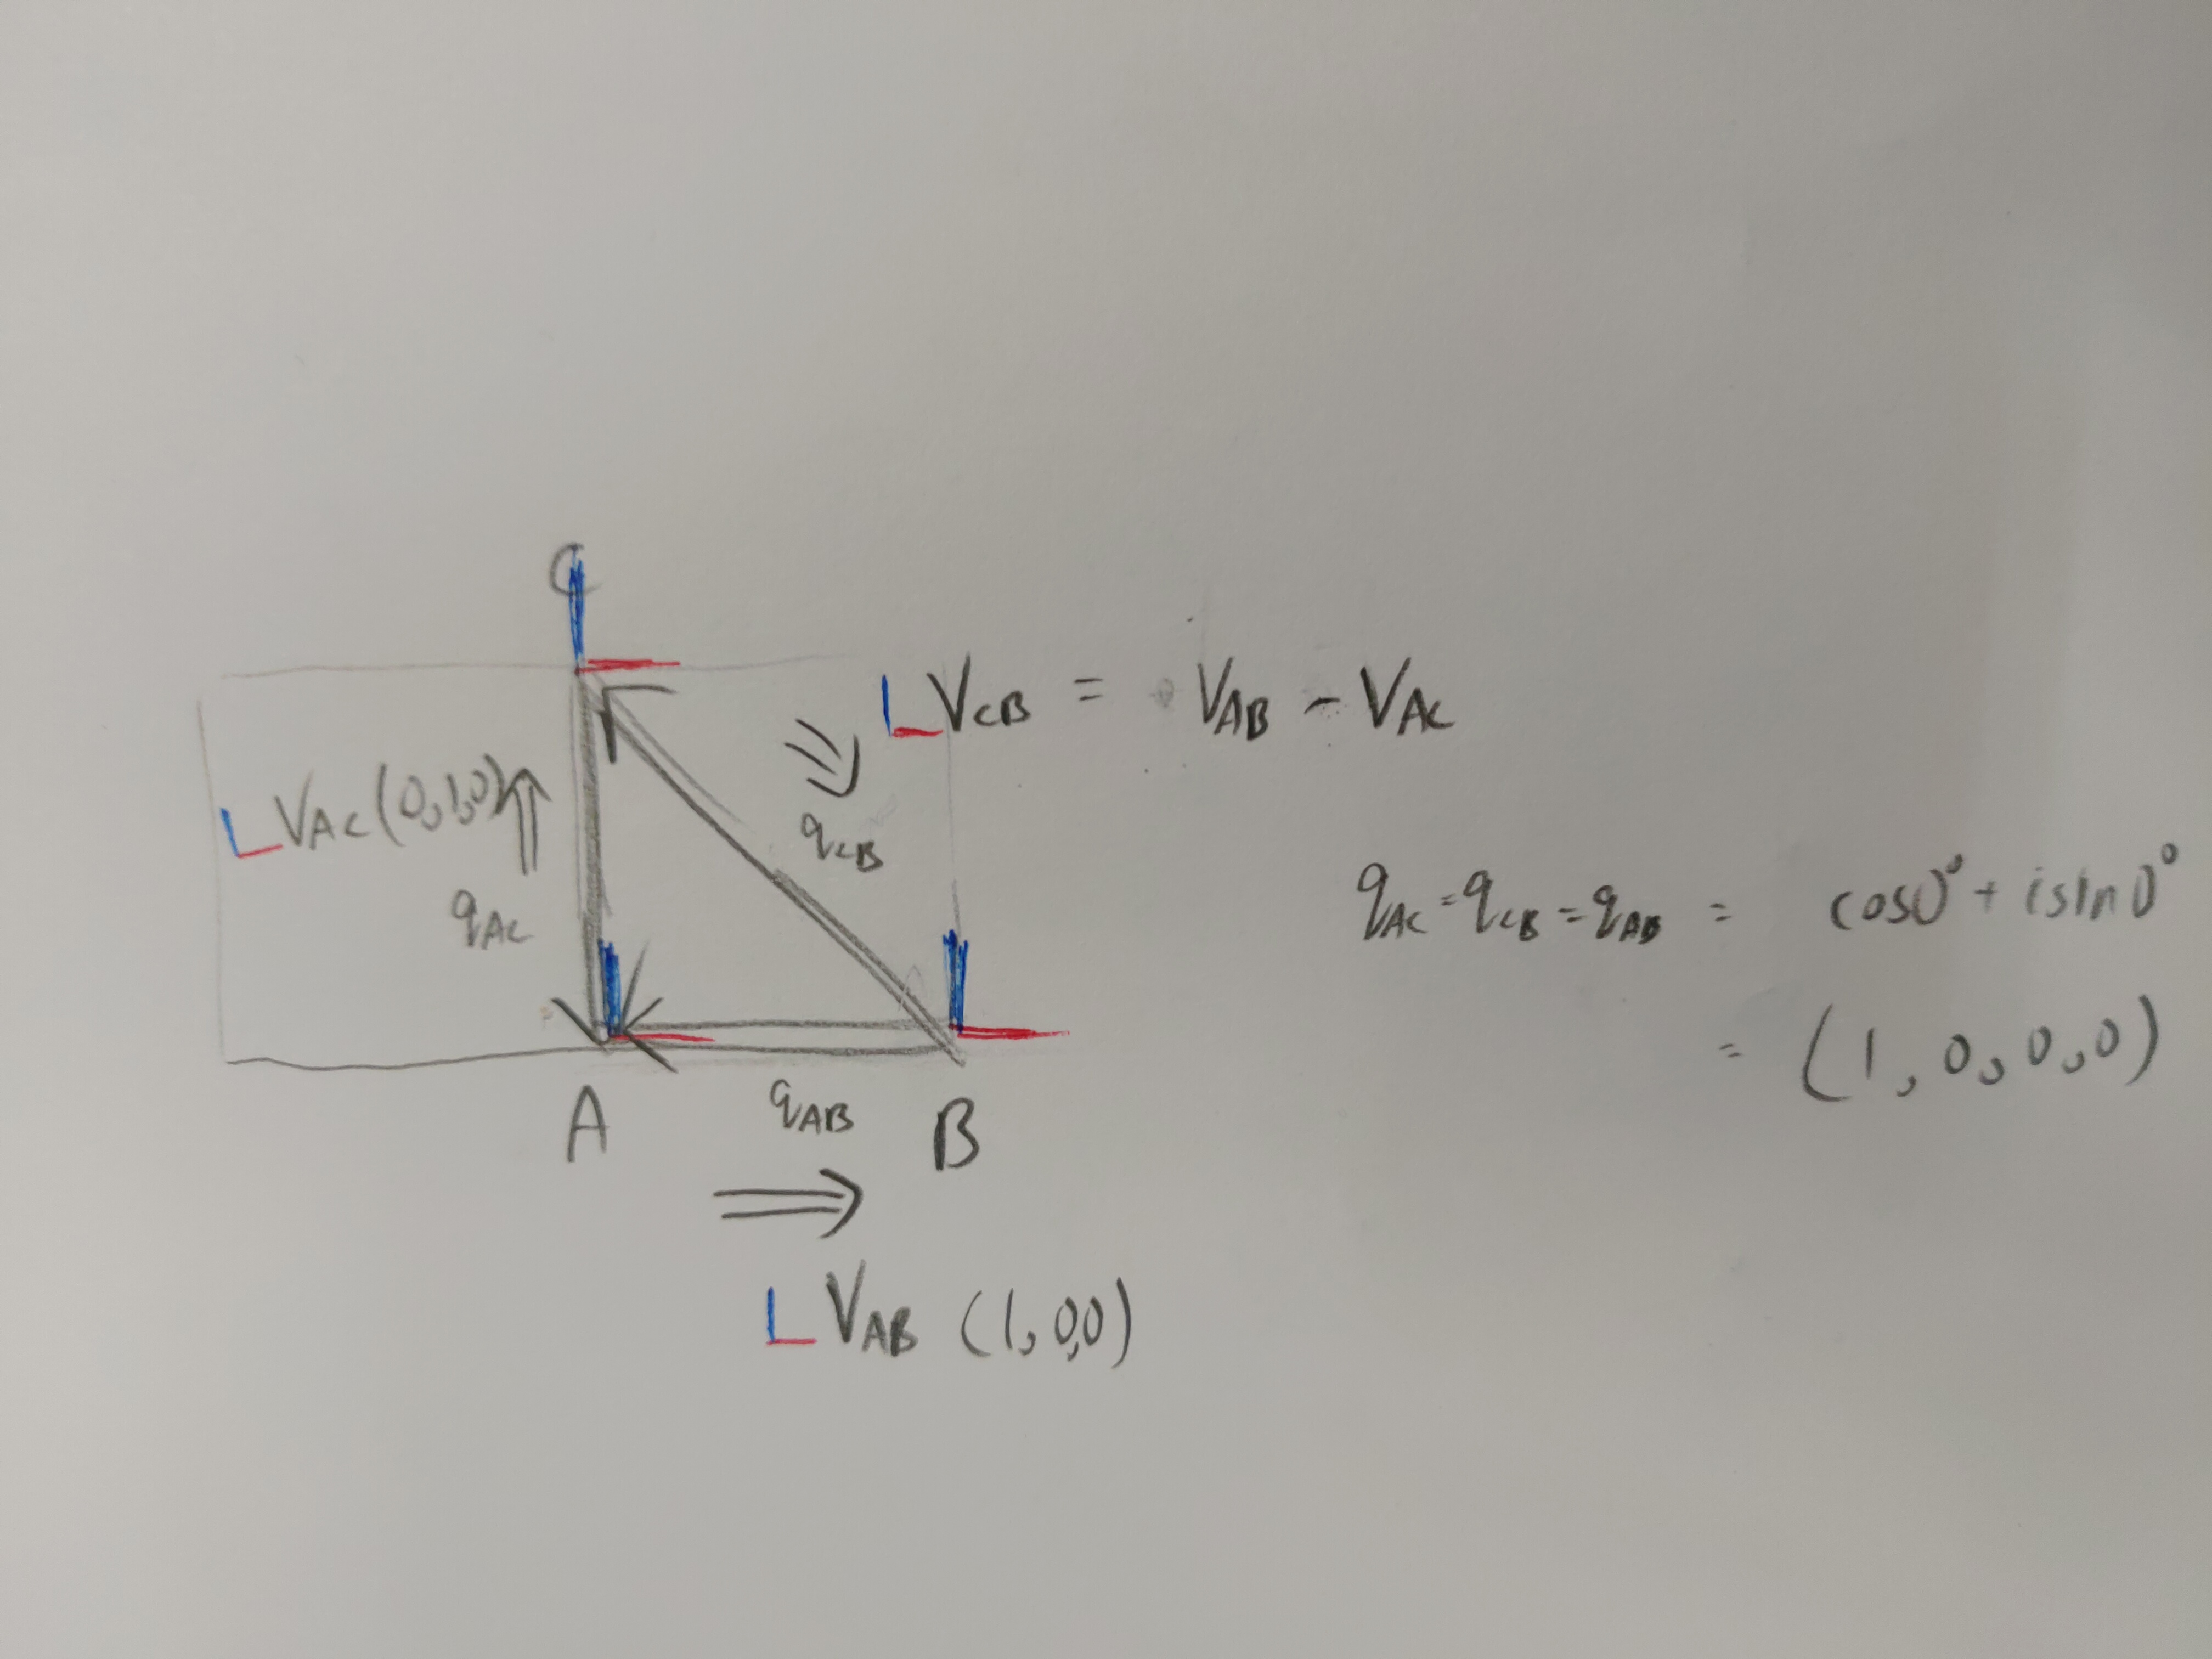 C
V_CB = V_AB - V_AC
V_AC (0,1,0)
q_CB
q_AC
q_AC = q_CB = q_AB = cos0° + isin0°
= (1, 0, 0, 0)
A
q_AB
B
V_AB (1,0,0)